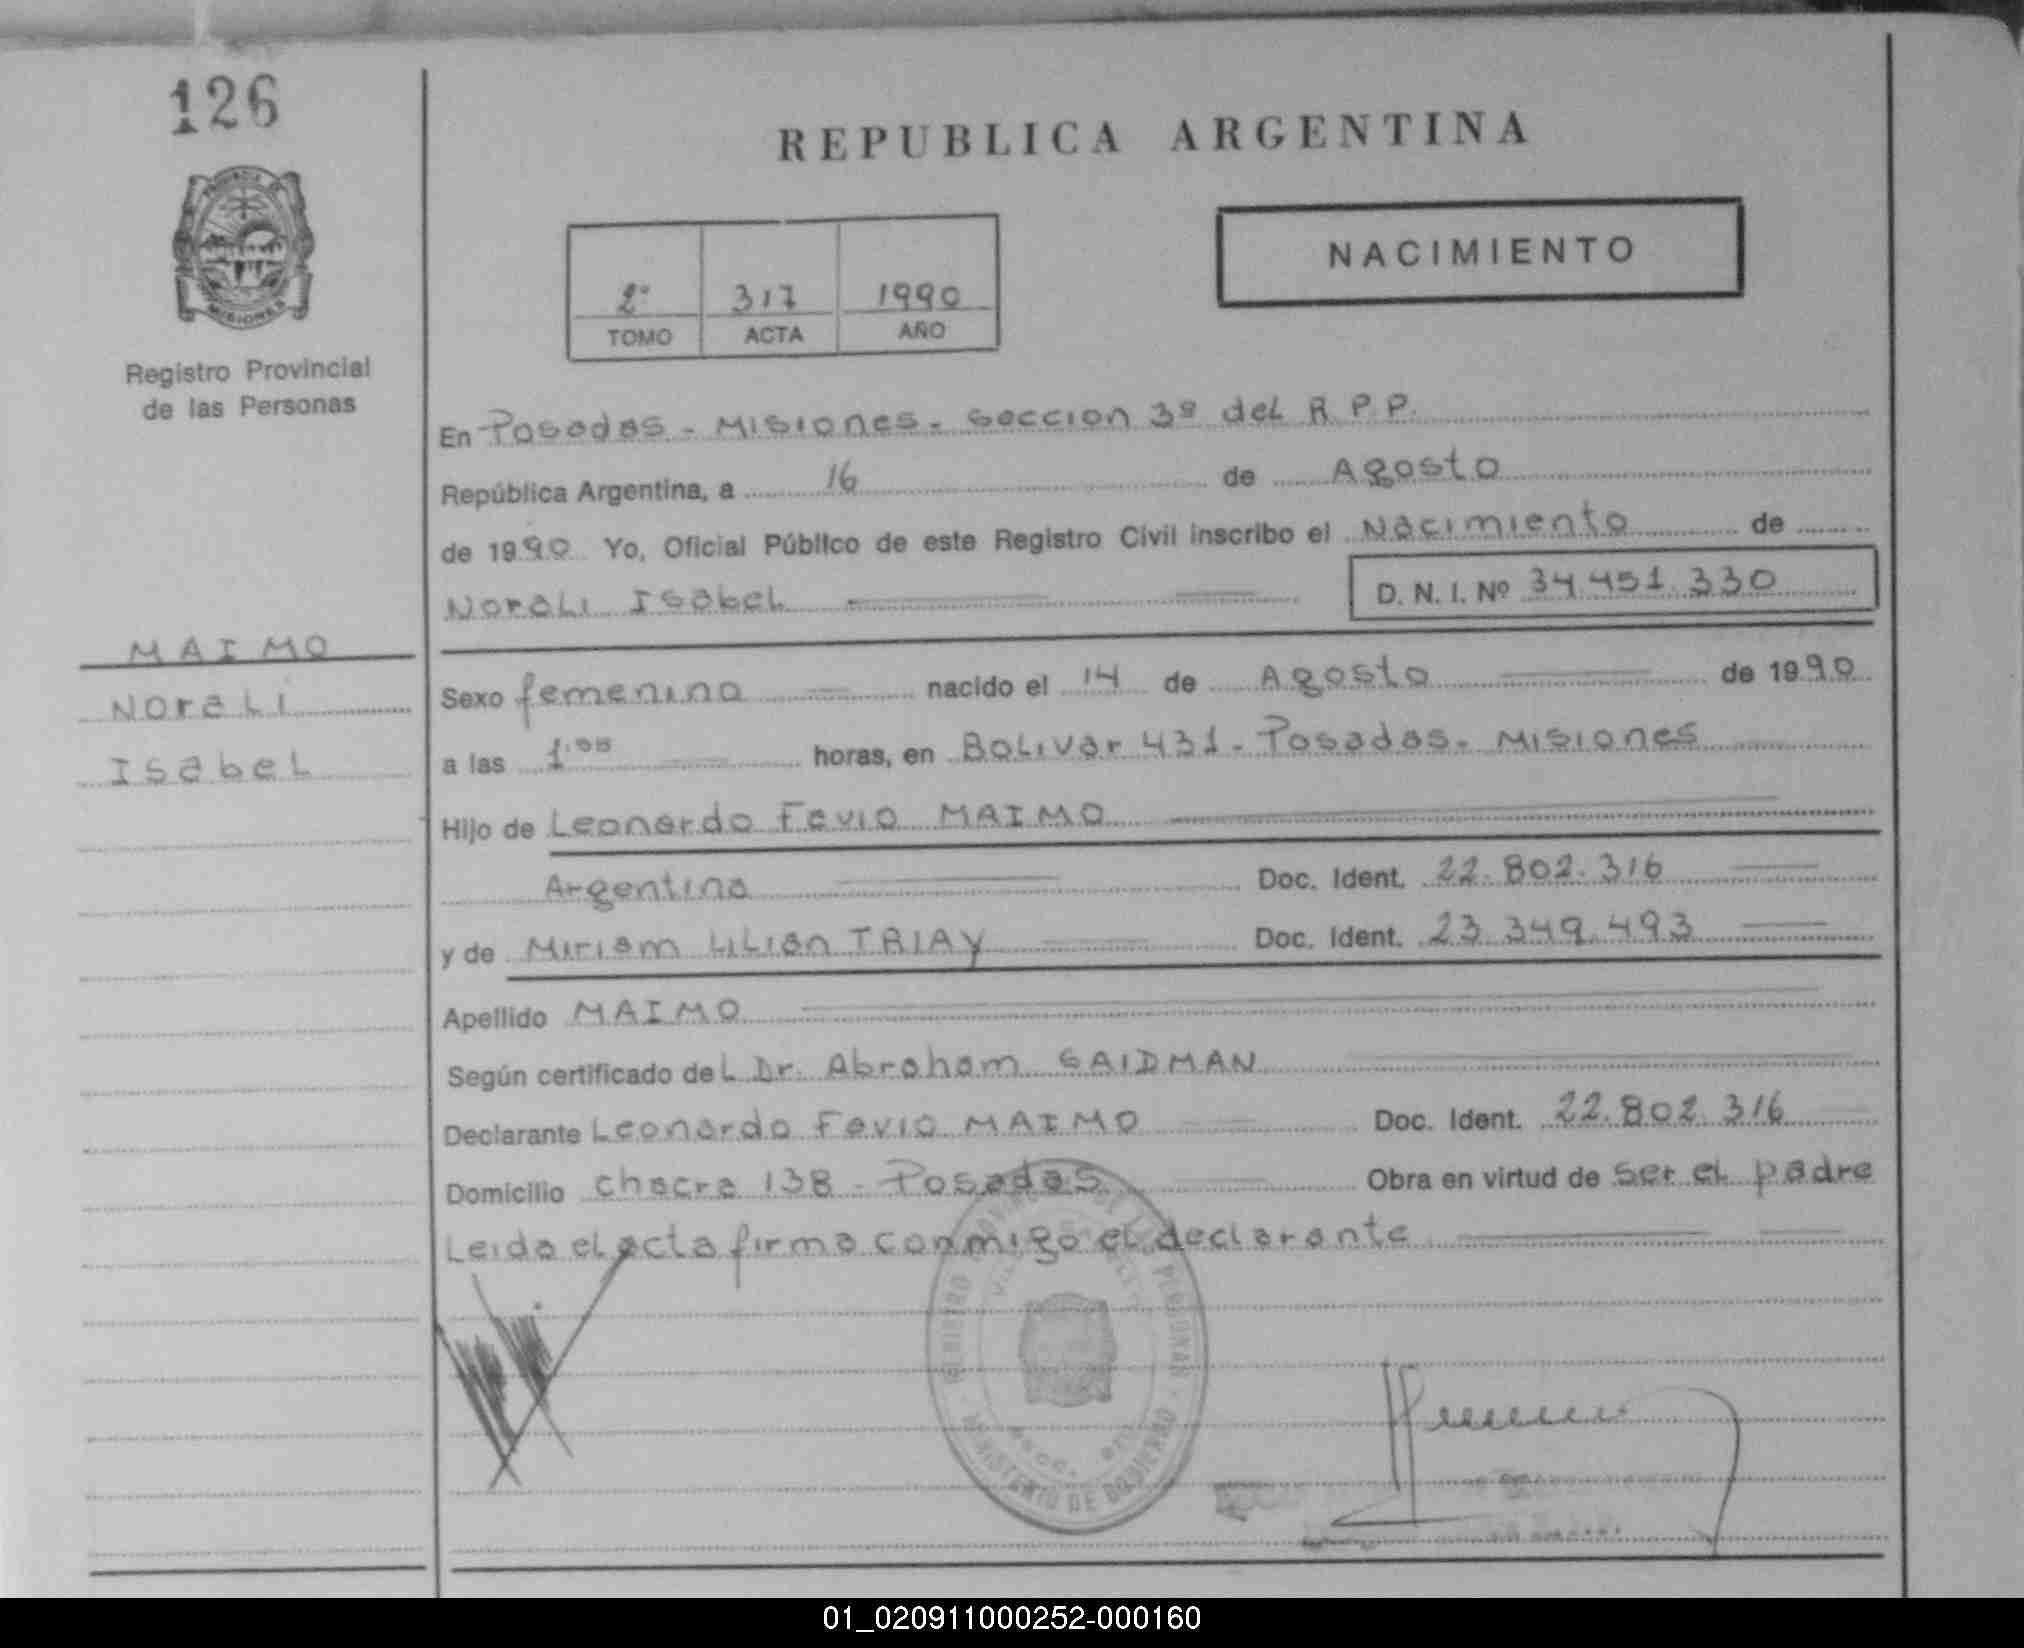 126
REPUBLICA ARGENTINA
NACIMIENTO
2º 317 1990
TOMO ACTA AÑO
PROVINCIA DE
MISIONES
Registro Provincial
de las Personas
En Posadas - Misiones - Seccion 3º del R.P.P.
República Argentina, a 16 de Agosto
de 1990 Yo, Oficial Público de este Registro Civil inscribo el Nacimiento de
Norali Isabel D. N. I. Nº 34.451.330
MAIMO
Norali
Isabel
Sexo femenino nacido el 14 de Agosto de 1990
a las horas, en Bolivar 431 - Posadas - Misiones
Hijo de Leonardo Favio MAIMO
Argentino Doc. Ident. 22.802.316
y de Miriam Lilian TRIAY Doc. Ident. 23.349.493
Apellido MAIMO
Según certificado del Dr. Abraham SAIDMAN
Declarante Leonardo Favio MAIMO Doc. Ident. 22.802.316
Domicilio chacra 138 - Posadas Obra en virtud de ser el padre
Leida el acta firma conmigo el declarante
REGISTRO PROVINCIAL DE LAS PERSONAS
MINISTERIO DE GOBIERNO
01_020911000252-000160